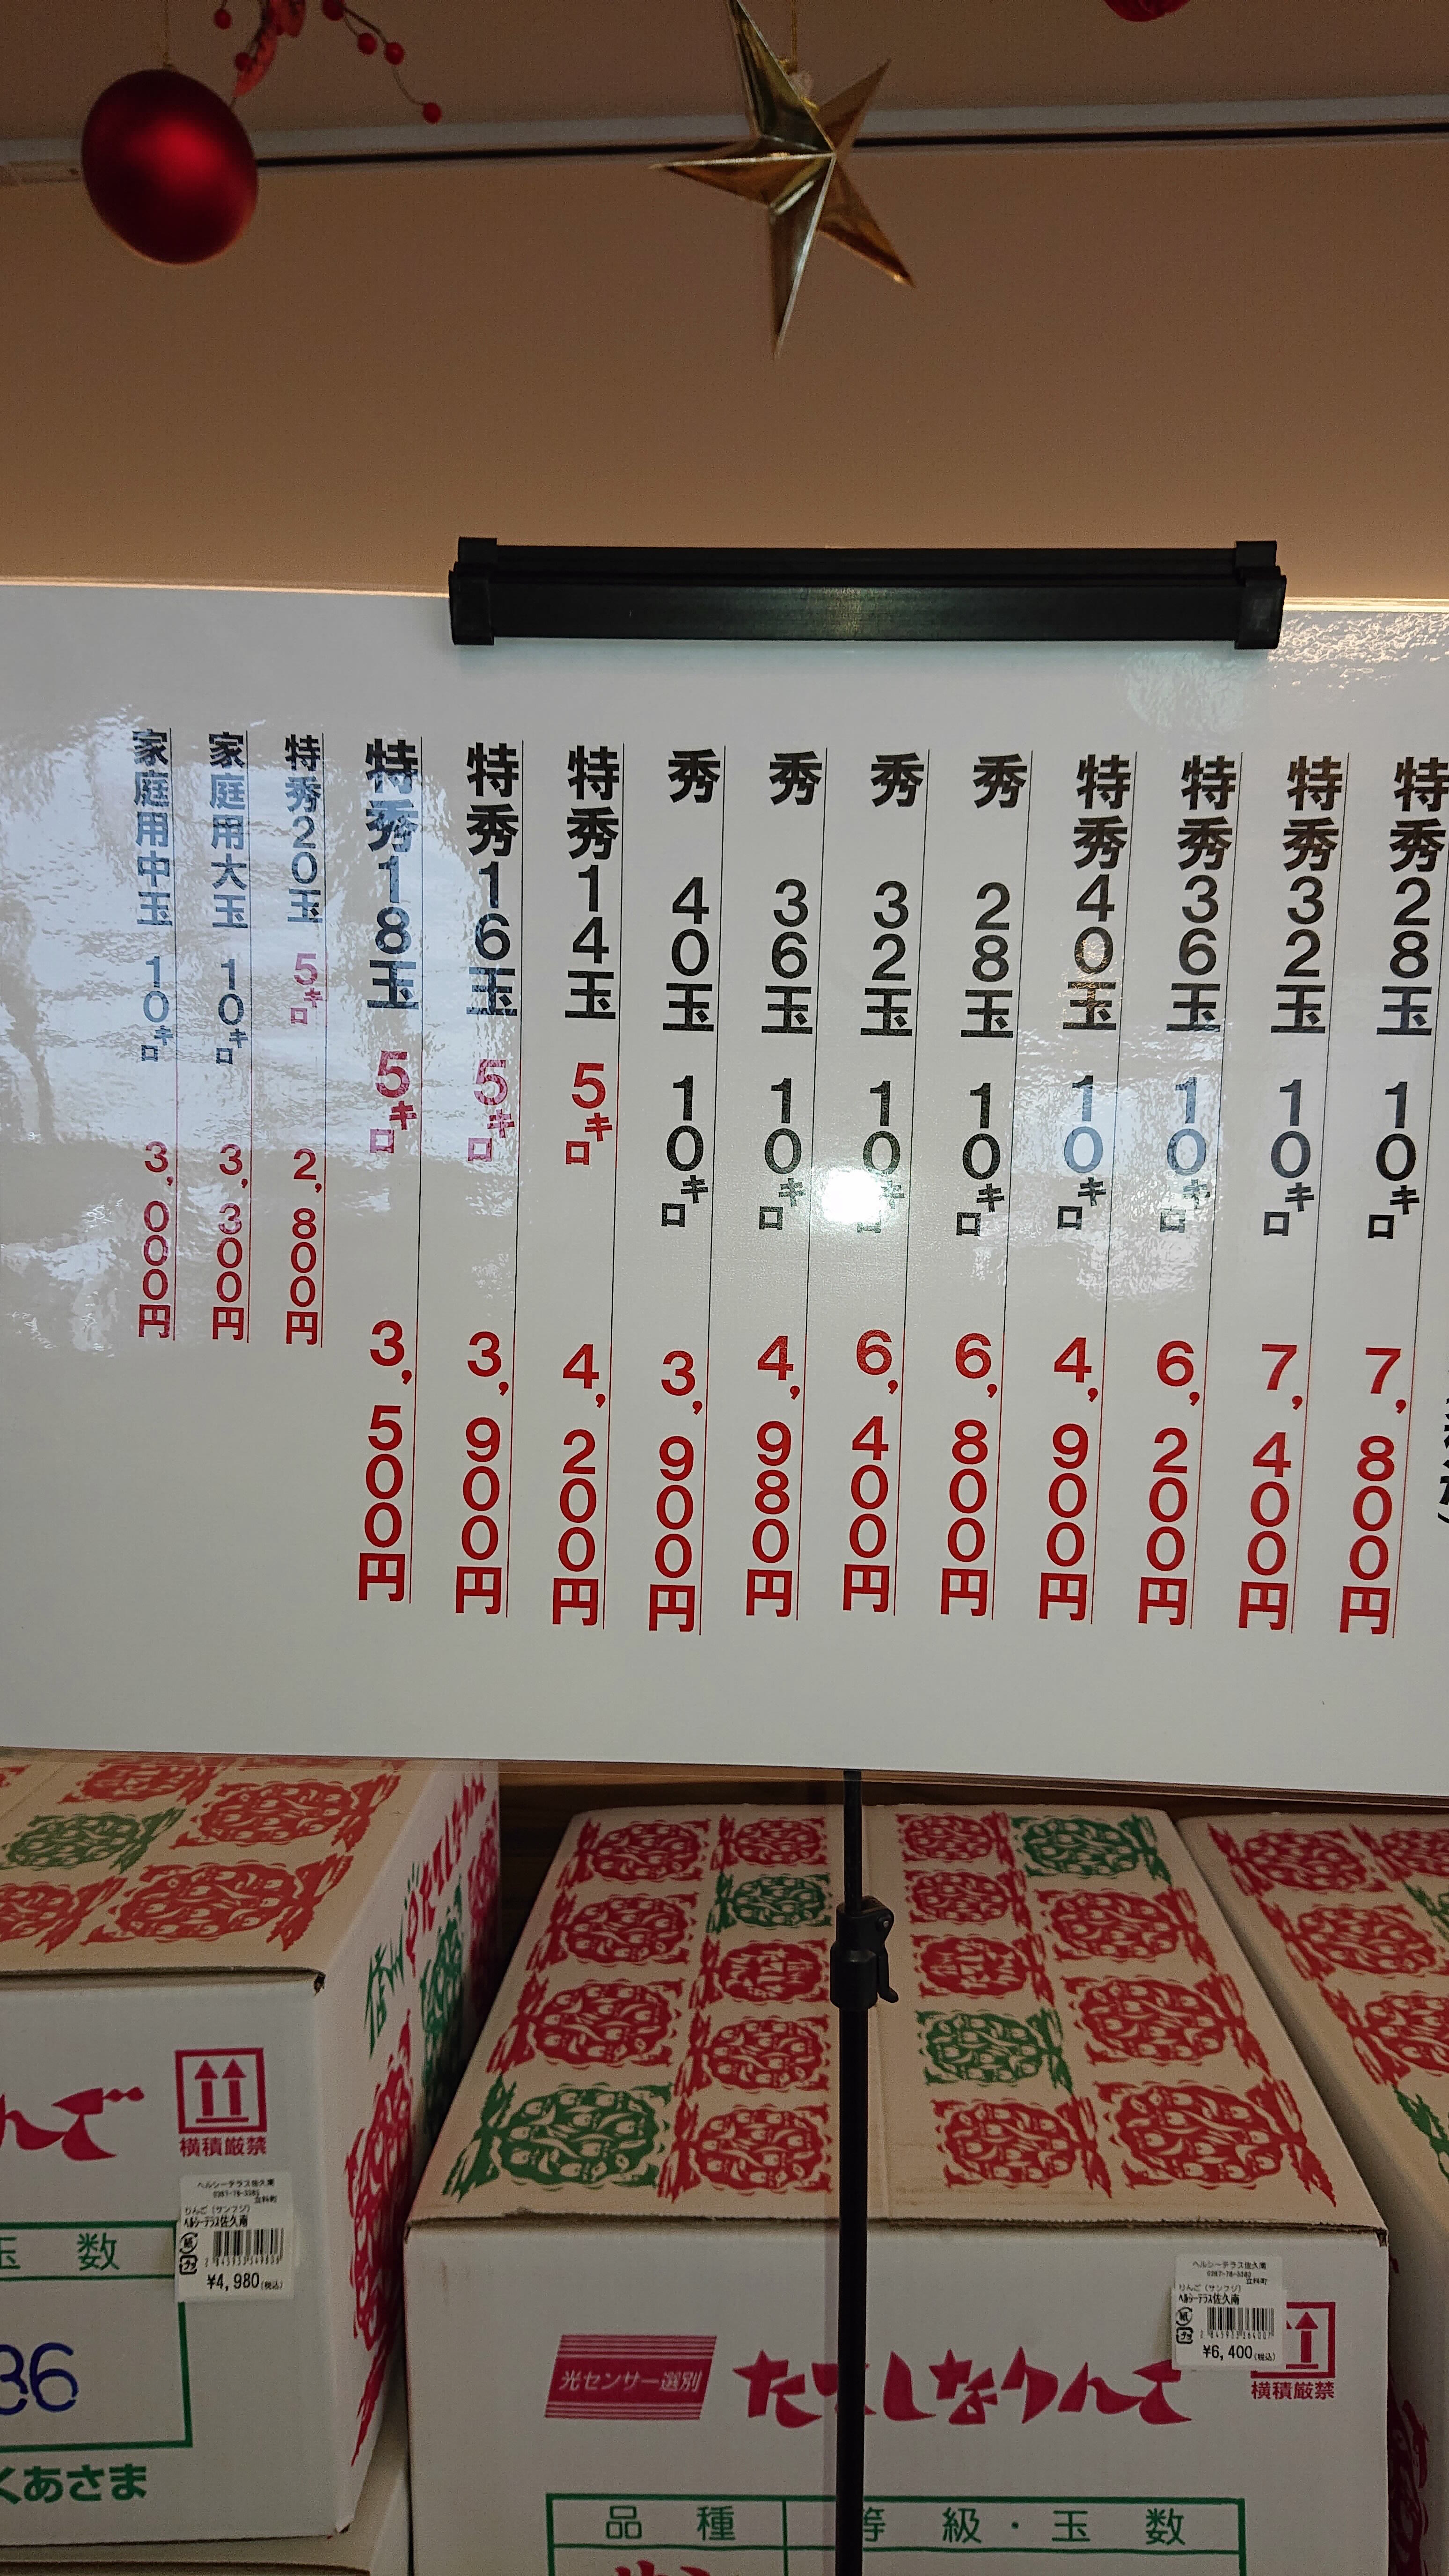 特秀28玉 10キロ 7,800円
特秀32玉 10キロ 7,400円
特秀36玉 10キロ 6,200円
特秀40玉 10キロ 4,900円
秀 28玉 10キロ 6,800円
秀 32玉 10キロ 6,400円
秀 36玉 10キロ 4,980円
秀 40玉 10キロ 3,900円
特秀14玉 5キロ 4,200円
特秀16玉 5キロ 3,900円
特秀18玉 5キロ 3,500円
特秀20玉 5キロ 2,800円
家庭用大玉 10キロ 3,300円
家庭用中玉 10キロ 3,000円
んご
横積厳禁
ヘルシーテラス佐久南
0267-78-3383
立科町
りんご(サンフジ)
ヘルシーテラス佐久南
紙
プラ
¥4,980(税込)
玉 数
36
くあさま
信州
ヘルシーテラス佐久南
0267-78-3383
立科町
りんご(サンフジ)
ヘルシーテラス佐久南
紙
プラ
¥6,400(税込)
横積厳禁
光センサー選別
たてしなりんご
品 種
等 級・玉 数